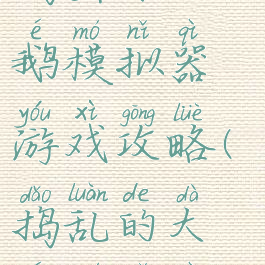 é mó nǐ qì
鹅模拟器
yóu xì gōng lüè
游戏攻略(
dǎo luàn de dà
捣乱的大